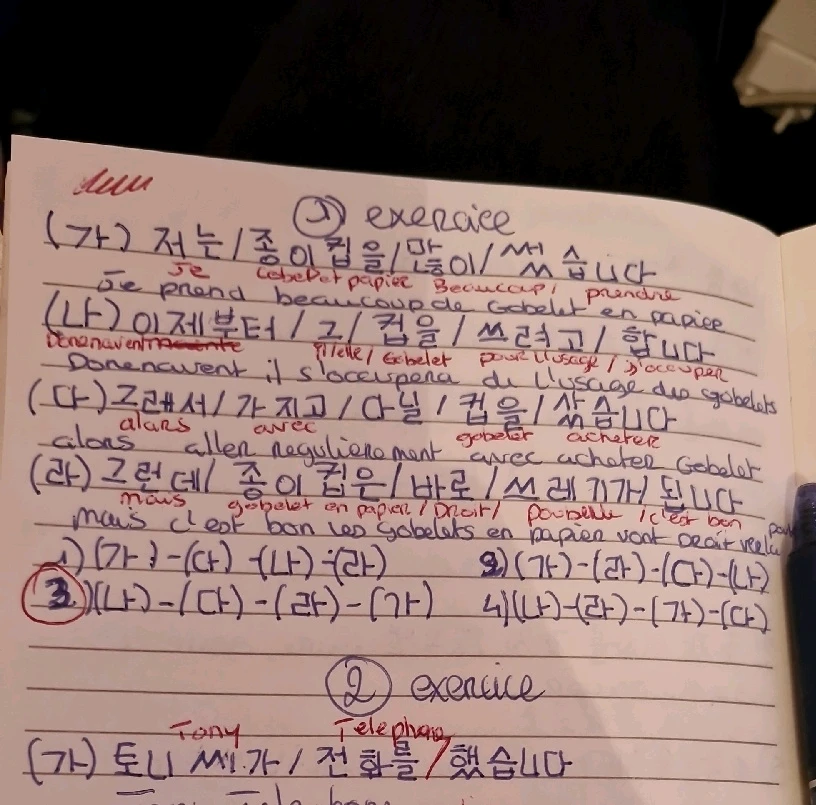 ① exercice
(가) 저는/종이컵을/많이/썼습니다
Je Gobelet papier Beaucoup/ prendre
Je prend beaucoup de Gobelet en papier
(나) 이제부터/그/컵을/쓰려고/합니다
Il/elle/ Gobelet pour l'usage/s'occuper
Donenavent il s'occupera de l'usage des gobelets
(다) 그래서/가지고/다닐/컵을/샀습니다
alors avec gobelet acheter
alors aller regulierement avec acheter Gobelet
(라) 그런데/종이컵은/바로/쓰레기가/됩니다
mais gobelet en papier/Droit/ poubelle /c'est bon
mais c'est bon les gobelets en papier vont Droit
1) (가)-(다)-(나)-(라) 2) (가)-(라)-(다)-(나)
3) (나)-(다)-(라)-(가) 4) (나)-(라)-(가)-(다)
② exercice
Tony Telephone
(가) 토니 씨가/전화를/했습니다